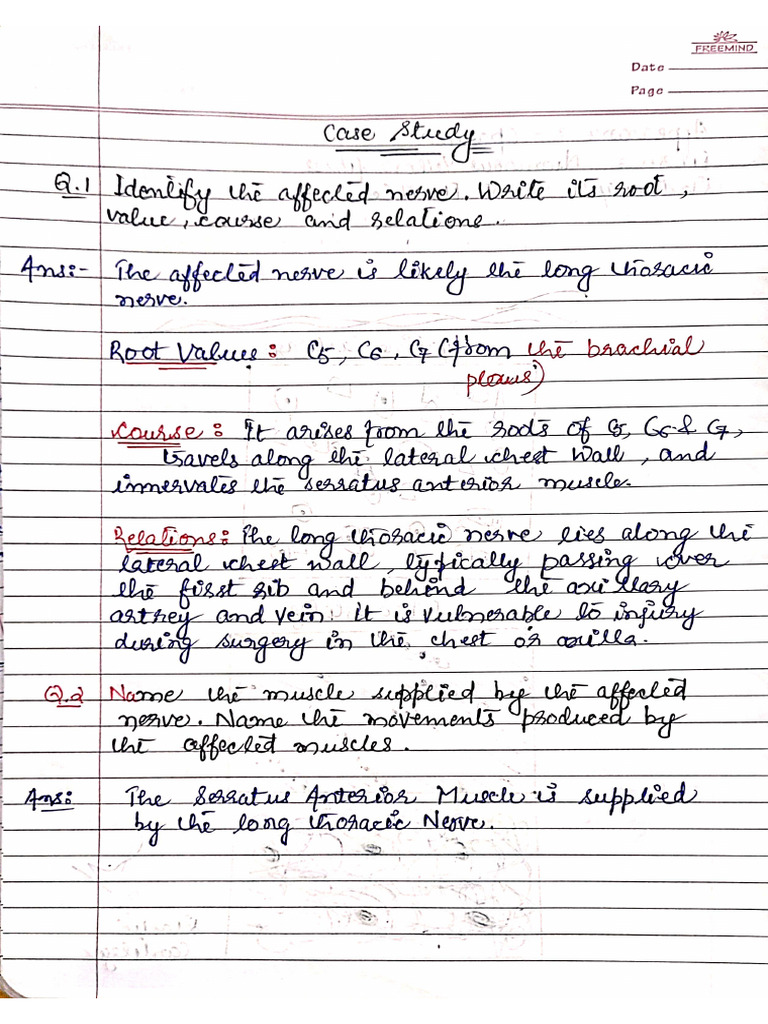 FREEMIND
Date
Page
Case Study
Q.1 Identify the affected nerve. Write its root,
value, course and relations.
Ans:- The affected nerve is likely the long thoracic
nerve.
Root Values: C5, C6, C7 (from the brachial
plexus)
Course: It arises from the roots of C5, C6 & C7,
travels along the lateral chest wall, and
innervates the serratus anterior muscle.
Relations: The long thoracic nerve lies along the
lateral chest wall, typically passing over
the first rib and behind the axillary
artrey and vein. it is vulnerable to injury
during surgery in the chest or axilla.
Q.2 Name the muscle supplied by the affected
nerve. Name the movements produced by
the affected muscles.
Ans: The Serratus Anterior Muscle is supplied
by the long thoracic Nerve.